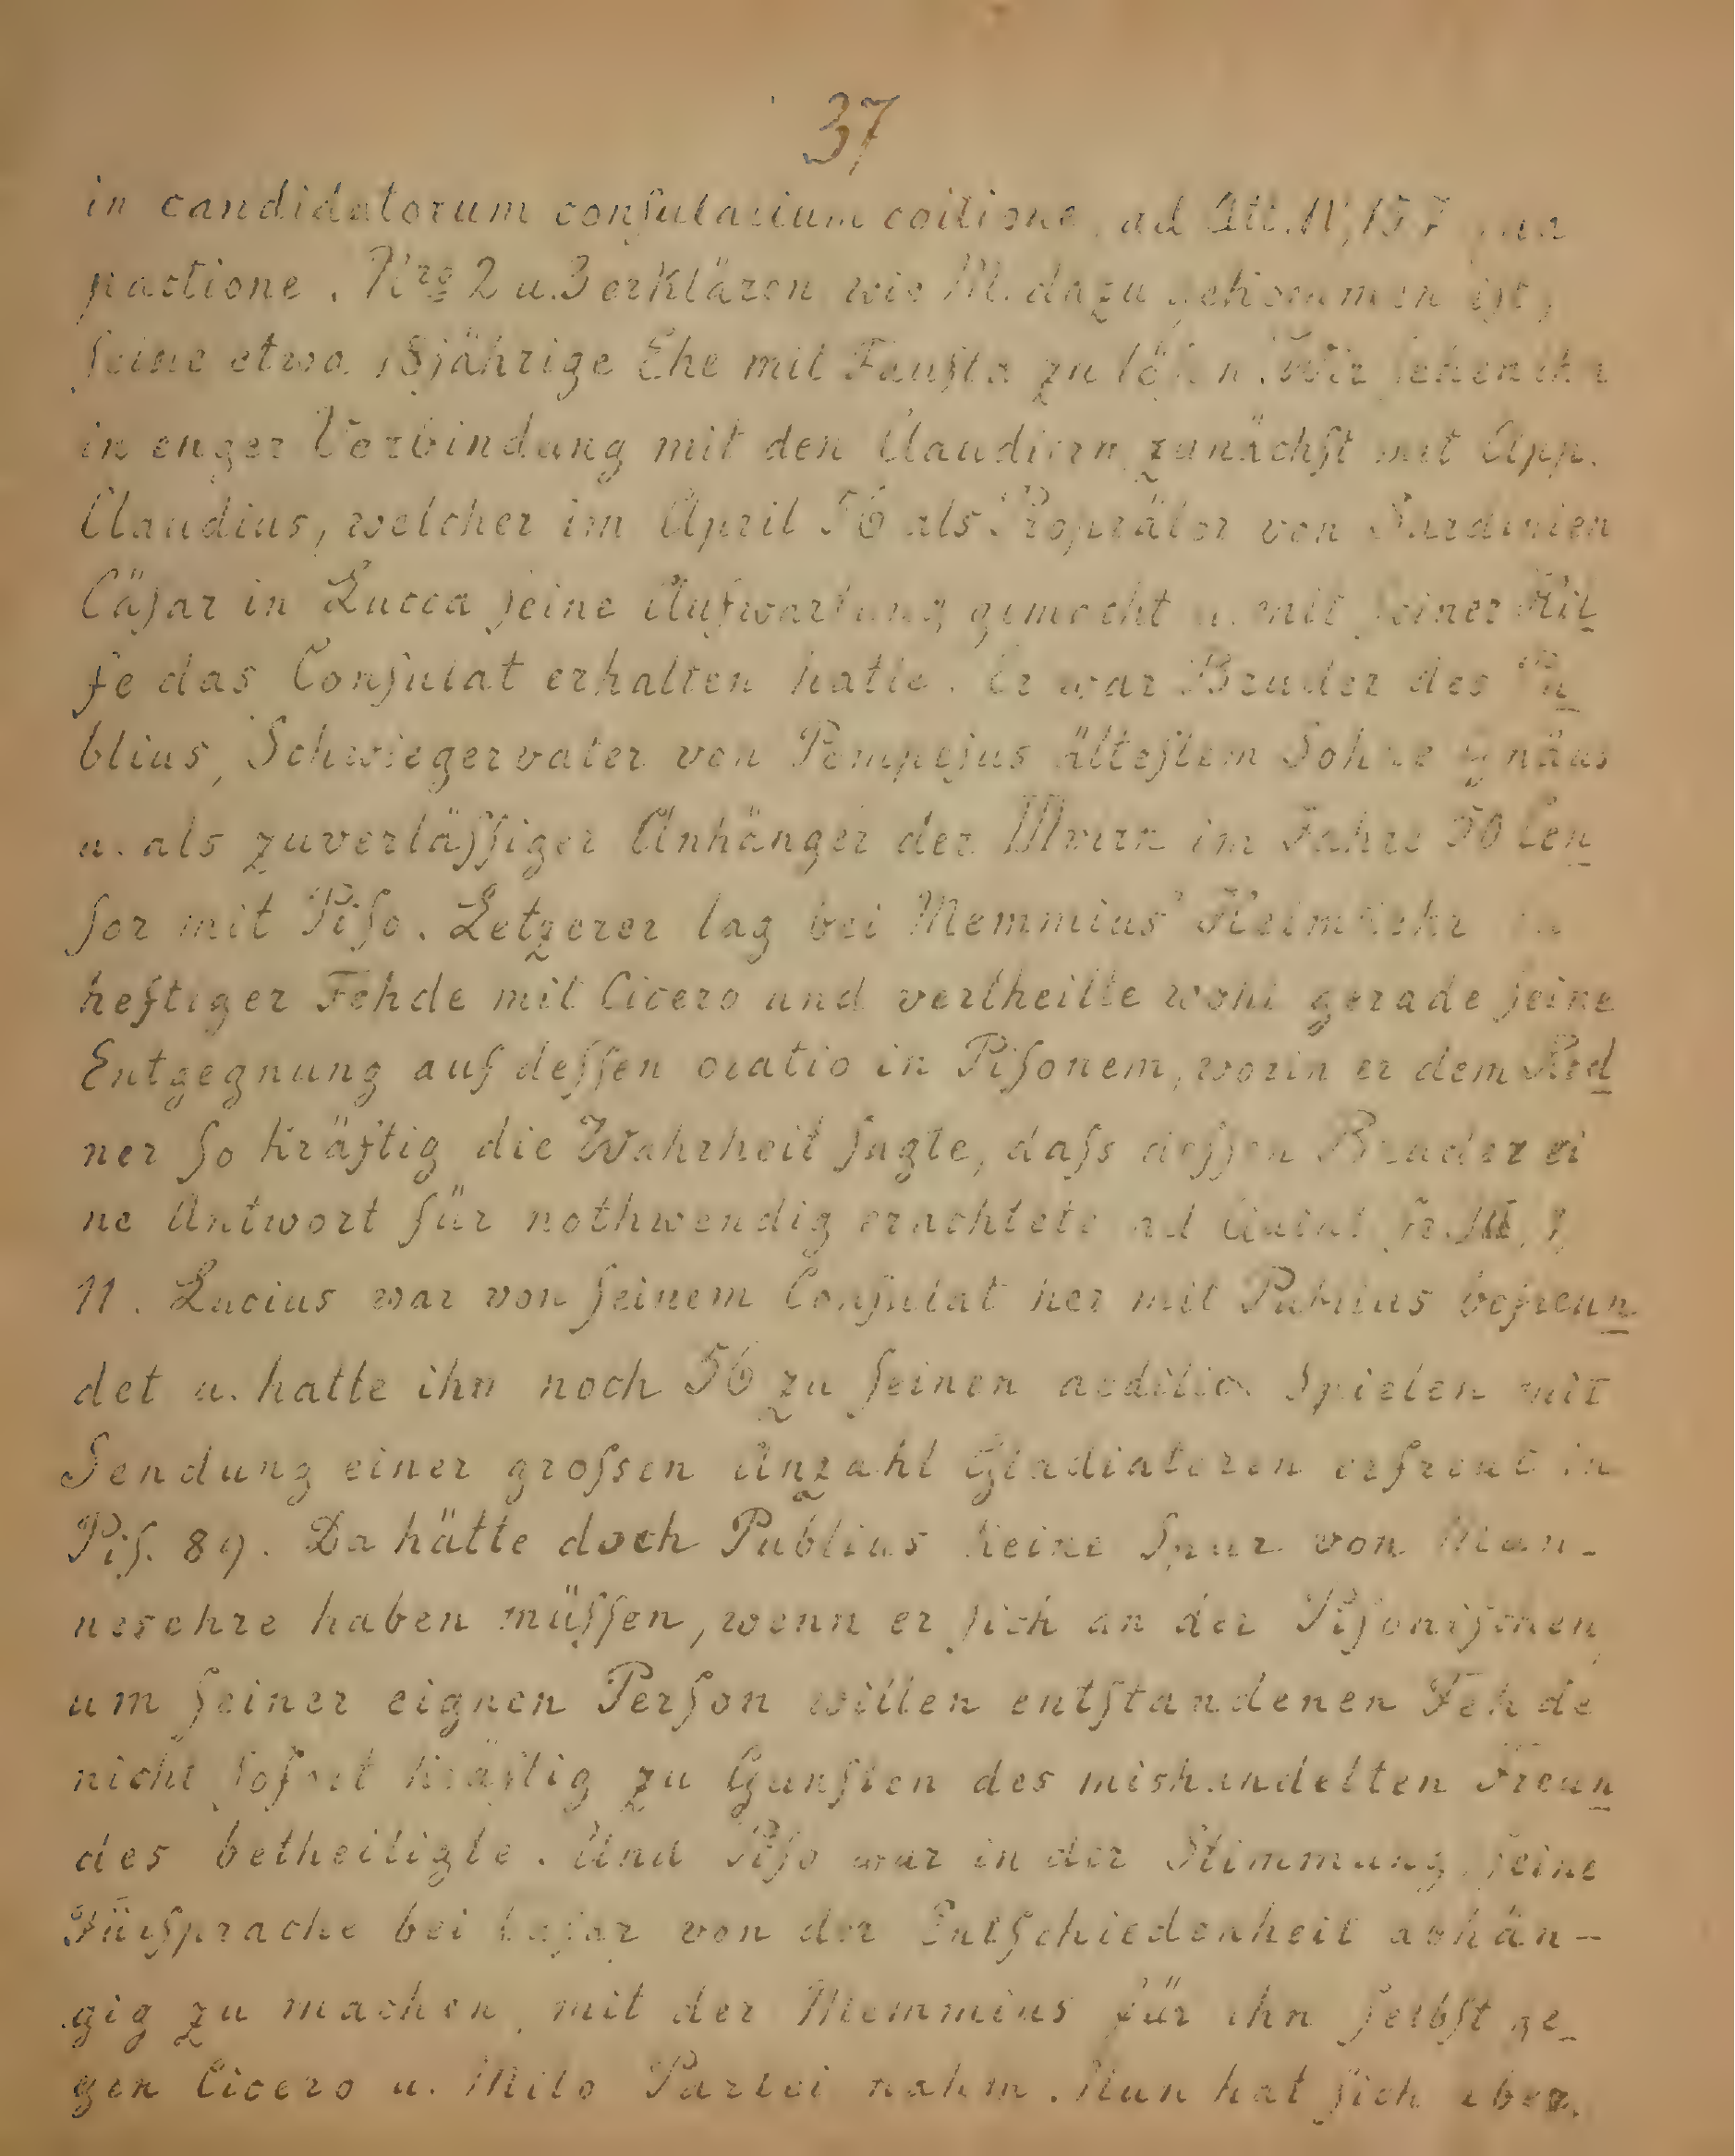 37
in candidatorum conſularium coitione, ad Att. IV, 15 7
pactione. Nro 2 u. 3 erklären wie M. dazu gekommen iſt,
ſeine etwa 18jährige Ehe mit Fauſta zu löſen. Wir ſehen ihn
in enger Verbindung mit den Claudiern, zunächſt mit App.
Claudius, welcher im April 56 als Proprätor von Sardinien
Cäſar in Lucca ſeine Aufwartung gemacht u. mit ſeiner Hil
fe das Conſulat erhalten hatte. Er war Bruder des Pu
blius, Schwiegervater von Pompejus älteſtem Sohne Gnäus
u. als zuverläſſiger Anhänger der IIIvirn im Jahre 50 Cen
ſor mit Piſo. Letzerer lag bei Memmius' Heimkehr in
heftiger Fehde mit Cicero und vertheilte wohl gerade ſeine
Entgegnung auf deſſen oratio in Piſonem, worin er dem Red
ner ſo kräftig die Wahrheit ſagte, daſs deſſen Bruder ei
ne Antwort für nothwendig erachtete ad Quint. fr. III, 1,
11. Lucius war von ſeinem Conſulat her mit Publius befreun
det u. hatte ihn noch 56 zu ſeinen aedilic. Spielen mit
Sendung einer groſsen Anzahl Gladiatoren erfreut in
Piſ. 89. Da hätte doch Publius keine Spur von Man-
nesehre haben müſſen, wenn er ſich an der Piſoniſchen,
um ſeiner eignen Perſon willen entſtandenen Fehde
nicht ſofort kräftig zu Gunſten des mishandelten Freun
des betheiligte. Und Piſo war in der Stimmung, ſeine
Fürſprache bei Caſar von der Entſchiedenheit abhän-
gig zu machen, mit der Memmius für ihn ſelbſt ge-
gen Cicero u. Milo Partei nahm. Nun hat ſich aber